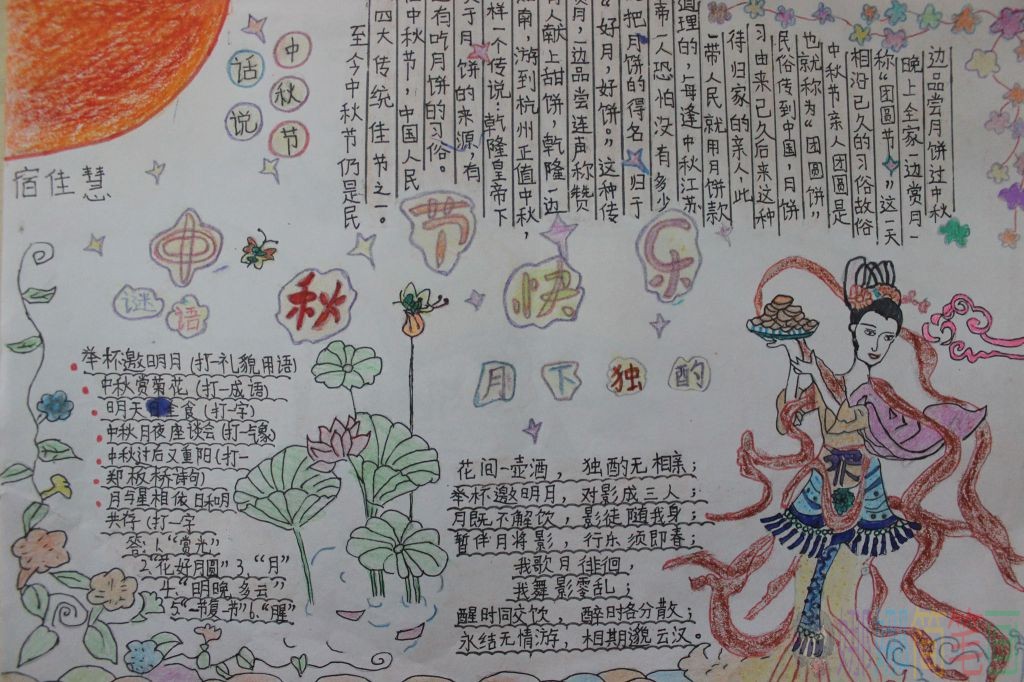 中秋节
话说
宿住慧
至今中秋节仍是民
四大传统佳节之一。
中秋节,中国人民
有吃月饼的习俗。
于月饼的来源,有
样一个传说:乾隆皇帝下
南,游到杭州正值中秋,
人献上甜饼,乾隆一边
月,一边品尝连声称赞
“好月,好饼。”这种传
把月饼的得名归于
帝一人恐怕没有多少
道理的,每逢中秋江苏
一带人民就用月饼款
待归家的亲人此
习由来已久后来这种
民俗传到中国,月饼
也就称为“团圆饼”
中秋节亲人团圆是
相沿已久的习俗故俗
称“团圆节”这一天
晚上全家一边赏月一
边品尝月饼过中秋
中秋节快乐
谜语
举杯邀明月(打一礼貌用语)
中秋赏菊花(打一成语)
明天 食(打一字)
中秋月夜座谈会(打一气象)
中秋过后又重阳(打一
郑板桥诗句)
月与星相依日和月
共存(打一字
答:1.“赏光”
2.“花好月圆”3.“月”
4.“明晚多云”
5.“一节复一节”6.“腥”
月下独酌
花间一壶酒,独酌无相亲;
举杯邀明月,对影成三人;
月既不解饮,影徒随我身;
暂伴月将影,行乐须即春;
我歌月徘徊,
我舞影零乱;
醒时同交饮,醉时各分散;
永结无情游,相期邈云汉。